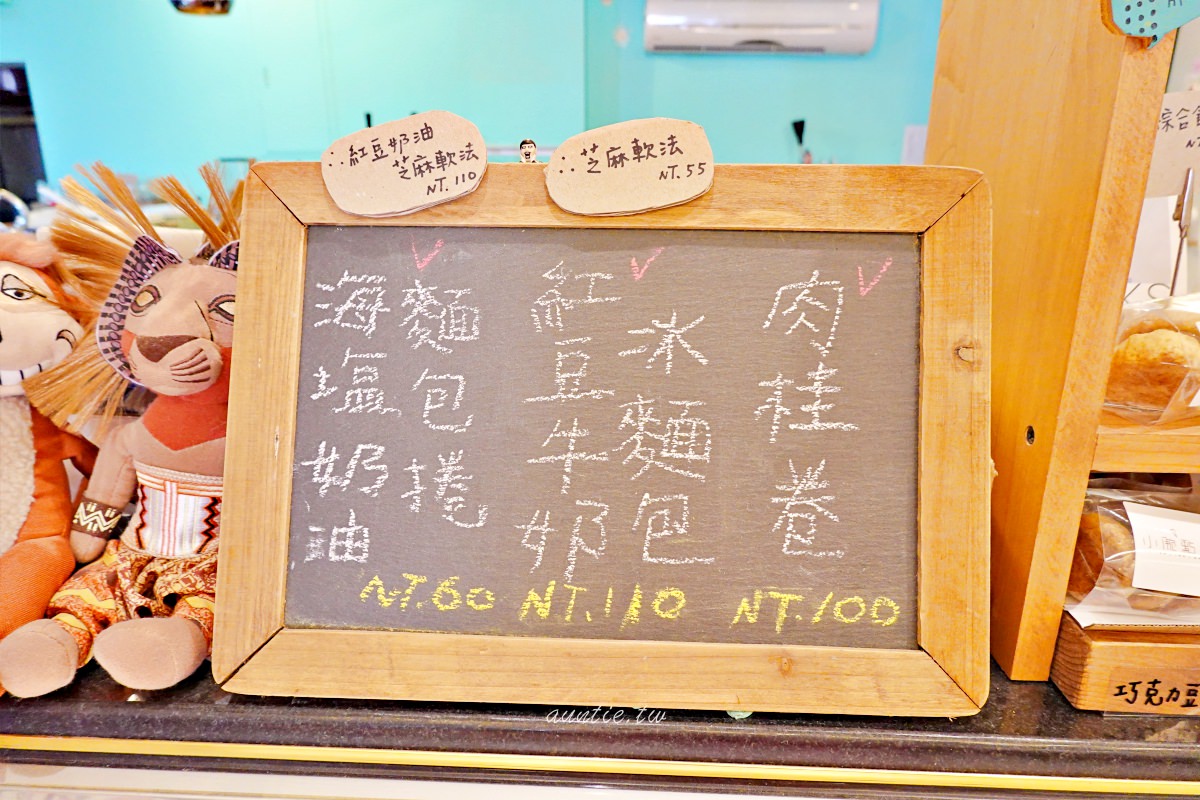 ∴紅豆奶油
芝麻軟法
NT.110
∴芝麻軟法
NT.55
肉桂卷
NT.100
冰麵包
紅豆牛奶
NT.110
麵包捲
海塩奶油
NT.60
綜合
巧克力豆
auntie.tw